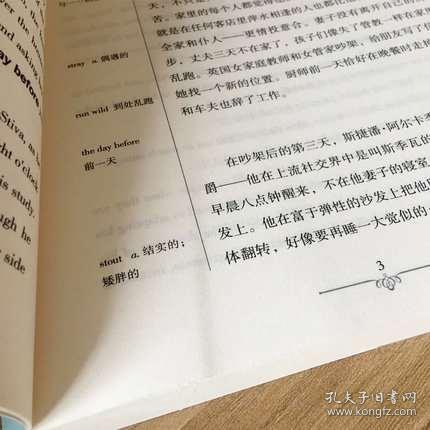 day before
Silva, as
ght o'clock
is study.
ough he
side
stray a. 偶遇的
run wild 到处乱跑
the day before
前一天
stout a. 结实的；
矮胖的
苦。家里的每个人都觉得
就是在任何客店里萍水相逢的人也都比
全家和仆人——更情投意合。妻子没有离开自己的
步，丈夫三天不在家了，孩子们像失了管教一样在家
乱跑。英国女家庭教师和女管家吵架，给朋友写了
她找一个新的位置。厨师前一天恰好在晚餐时走
和车夫也辞了工作。
在吵架后的第三天，斯捷潘·阿尔卡季
爵——他在上流社交界中是叫斯季瓦的
早晨八点钟醒来，不在他妻子的寝室
发上。他在富于弹性的沙发上把他
体翻转，好像要再睡一大觉似的
3
孔夫子旧书网
www.kongfz.com